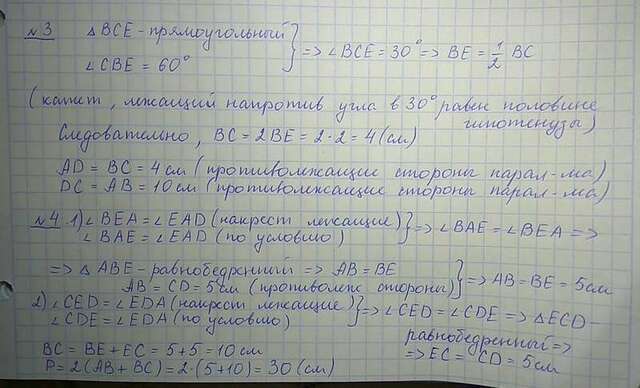 №3 △BCE - прямоугольный } => ∠BCE = 30° => BE = 1/2 BC
∠CBE = 60°
(катет, лежащий напротив угла в 30° равен половине
гипотенузы)
Следовательно, BC = 2BE = 2·2 = 4 (см)
AD = BC = 4 см (противолежащие стороны парал-ма)
DC = AB = 10 см (противолежащие стороны парал-ма)
№4. 1) ∠BEA = ∠EAD (накрест лежащие) } => ∠BAE = ∠BEA =>
∠BAE = ∠EAD (по условию)
=> △ABE - равнобедренный => AB = BE } => AB = BE = 5 см
AB = CD = 5 см (противолеж стороны)
2) ∠CED = ∠EDA (накрест лежащие) } => ∠CED = ∠CDE => △ECD -
∠CDE = ∠EDA (по условию)
равнобедренный =>
=> EC = CD = 5 см
BC = BE + EC = 5 + 5 = 10 см
P = 2(AB + BC) = 2·(5+10) = 30 (см)